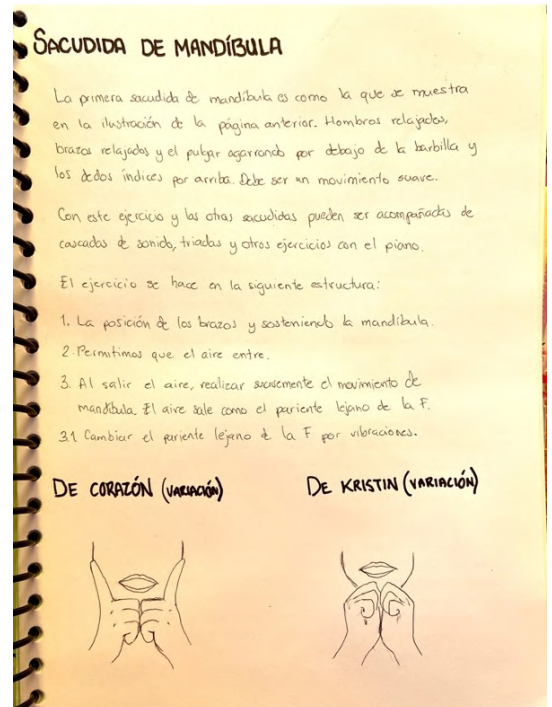 SACUDIDA DE MANDÍBULA
La primera sacudida de mandíbula es como la que se muestra
en la ilustración de la página anterior. Hombros relajados,
brazos relajados y el pulgar agarrando por debajo de la barbilla y
los dedos índices por arriba. Debe ser un movimiento suave.
Con este ejercicio y las otras sacudidas pueden ser acompañadas de
cascadas de sonido, triadas y otros ejercicios con el piano.
El ejercicio se hace en la siguiente estructura:
1. La posición de los brazos y sosteniendo la mandíbula.
2. Permitimos que el aire entre.
3. Al salir el aire, realizar suavemente el movimiento de
mandíbula. El aire sale como el pariente lejano de la F.
3.1 Cambiar el pariente lejano de la F por vibraciones.
DE CORAZÓN (VARIACIÓN)
DE KRISTIN (VARIACIÓN)